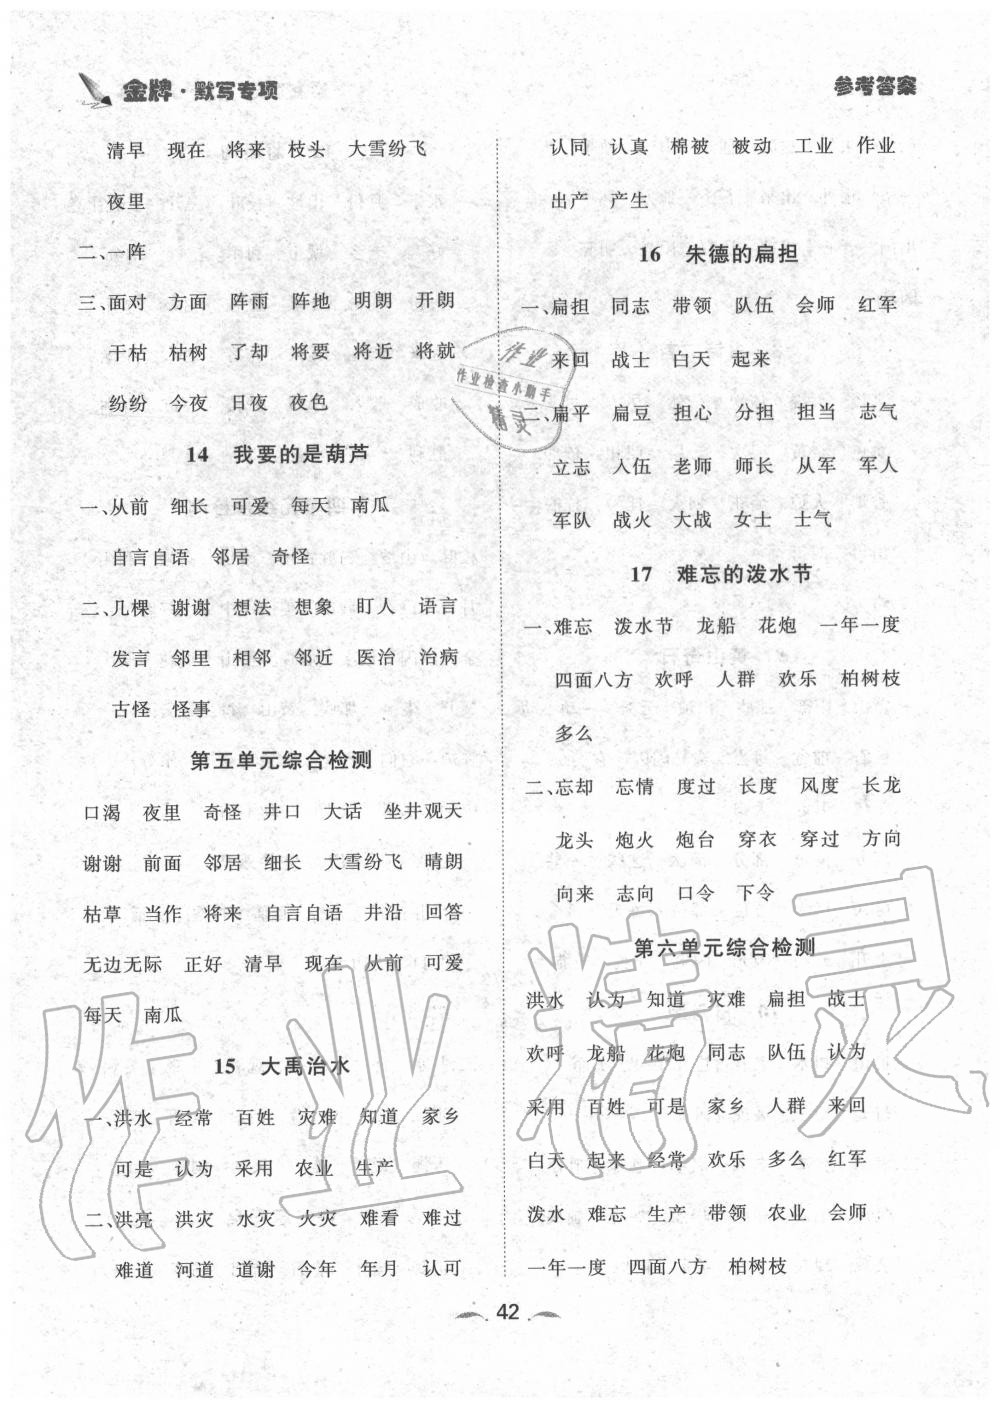 金牌·默写专项
参考答案
清早 现在 将来 枝头 大雪纷飞
夜里
二、一阵
三、面对 方面 阵雨 阵地 明朗 开朗
干枯 枯树 了却 将要 将近 将就
纷纷 今夜 日夜 夜色
14 我要的是葫芦
一、从前 细长 可爱 每天 南瓜
自言自语 邻居 奇怪
二、几棵 谢谢 想法 想象 盯人 语言
发言 邻里 相邻 邻近 医治 治病
古怪 怪事
第五单元综合检测
口渴 夜里 奇怪 井口 大话 坐井观天
谢谢 前面 邻居 细长 大雪纷飞 晴朗
枯草 当作 将来 自言自语 井沿 回答
无边无际 正好 清早 现在 从前 可爱
每天 南瓜
15 大禹治水
一、洪水 经常 百姓 灾难 知道 家乡
可是 认为 采用 农业 生产
二、洪亮 洪灾 水灾 火灾 难看 难过
难道 河道 道谢 今年 年月 认可
认同 认真 棉被 被动 工业 作业
出产 产生
16 朱德的扁担
一、扁担 同志 带领 队伍 会师 红军
来回 战士 白天 起来
二、扁平 扁豆 担心 分担 担当 志气
立志 入伍 老师 师长 从军 军人
军队 战火 大战 女士 士气
17 难忘的泼水节
一、难忘 泼水节 龙船 花炮 一年一度
四面八方 欢呼 人群 欢乐 柏树枝
多么
二、忘却 忘情 度过 长度 风度 长龙
龙头 炮火 炮台 穿衣 穿过 方向
向来 志向 口令 下令
第六单元综合检测
洪水 认为 知道 灾难 扁担 战士
欢呼 龙船 花炮 同志 队伍 认为
采用 百姓 可是 家乡 人群 来回
白天 起来 经常 欢乐 多么 红军
泼水 难忘 生产 带领 农业 会师
一年一度 四面八方 柏树枝
42
作业
作业检查小助手
精灵
作业精灵